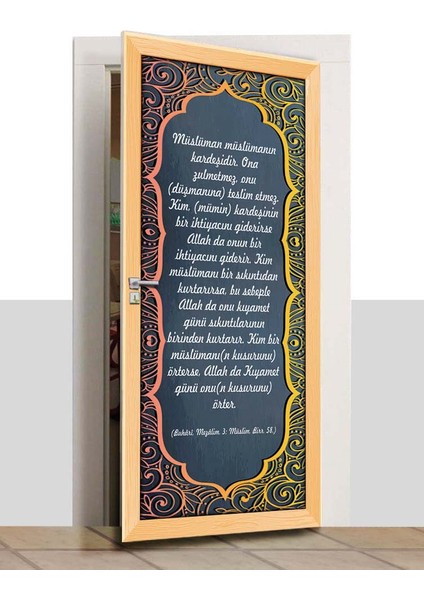 Müslüman müslümanın
kardeşidir. Ona
zulmetmez, onu
(düşmanına) teslim etmez.
Kim, (mümin) kardeşinin
bir ihtiyacını giderirse
Allah da onun bir
ihtiyacını giderir. Kim
müslümanı bir sıkıntıdan
kurtarırsa, bu sebeple
Allah da onu kıyamet
günü sıkıntılarının
birinden kurtarır. Kim bir
müslümanı(n kusurunu)
örterse, Allah da Kıyamet
günü onu(n kusurunu)
örter.
(Buhârî, Mezâlim, 3; Müslim, Birr, 58.)